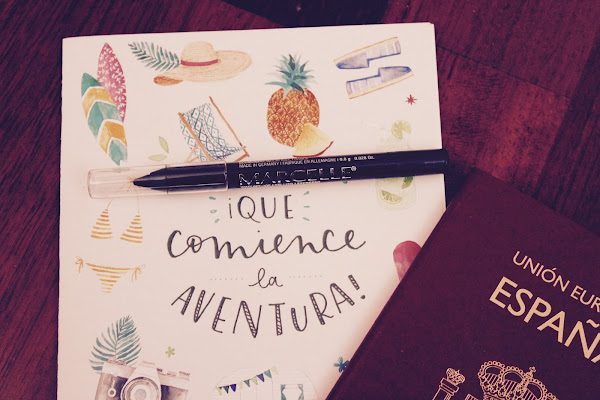 MADE IN GERMANY / FABRIQUÉ EN ALLEMAGNE / 0.8 g 0.028 Oz.
MARCELLE®
¡QUE
comience
la
AVENTURA!
UNIÓN EUR
ESPAÑA